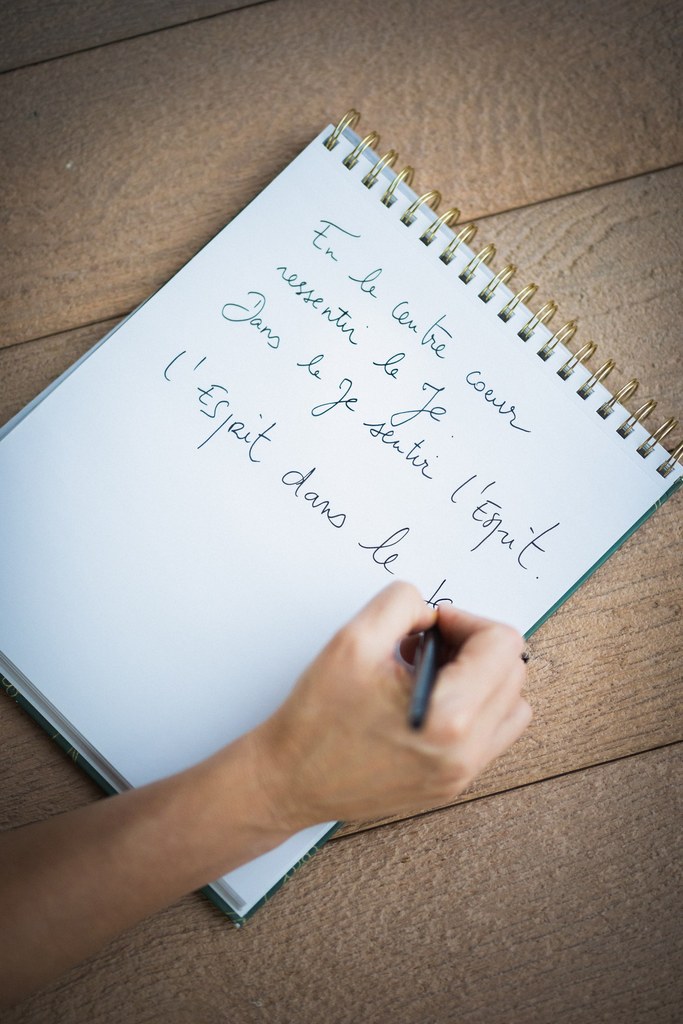 En le centre coeur
ressentir le Je
Dans le Je sentir l'Esprit.
l'Esprit dans le